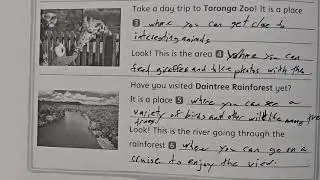 Take a day trip to Taronga Zoo! It is a place
3 where you can get close to
interesting animals
Look! This is the area 4 where you can
feed giraffes and take photos with them
Have you visited Daintree Rainforest yet?
It is a place 5 where you can see a
variety of birds and other wildlife among the
trees.
Look! This is the river going through the
rainforest 6 where you can go on a
cruise to enjoy the view.